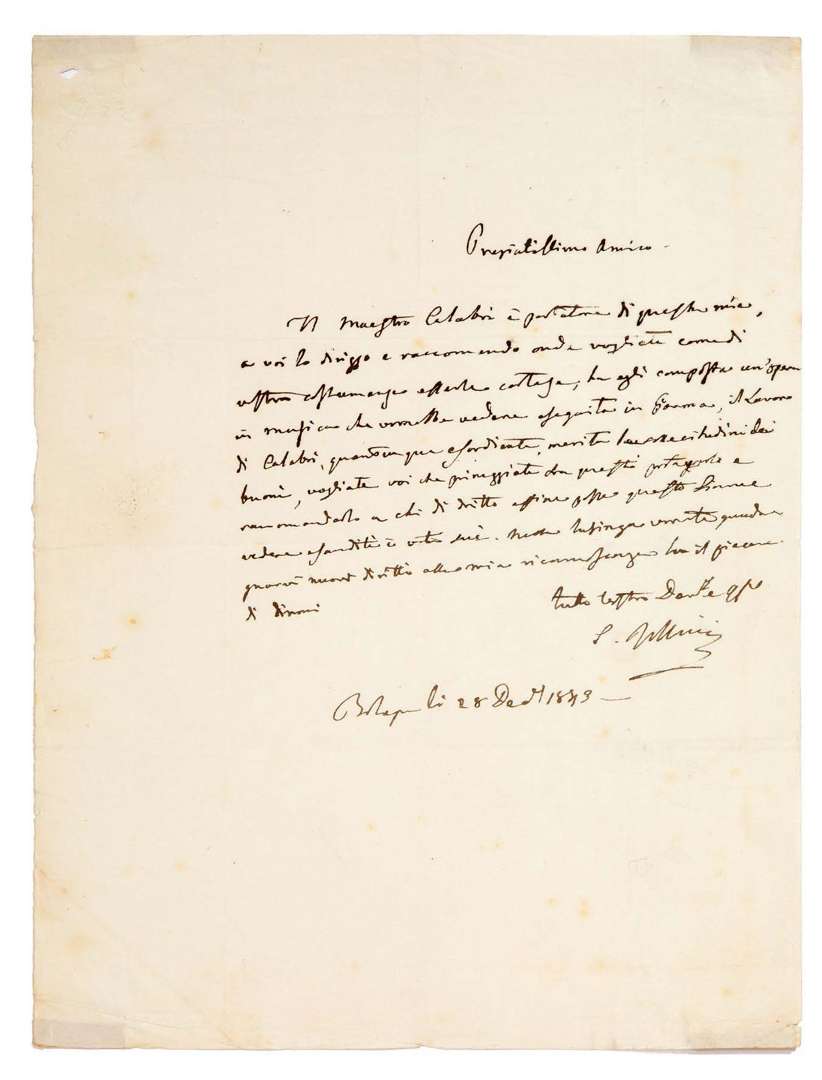 Pregiatissimo Amico.
Il Maestro Calabri è portatore di questa mia,
a voi lo dirigo e raccomando onde vogliate come di
vostro costume essere cortese, ha egli composto un'opera
in musica che vorrebbe vedere eseguita in Parma, il Lavoro
di Calabri, quantunque esordiente, merita
buoni, vogliate voi che primeggiate fra questi
raccomandarlo a chi di dritto affine possa questo Giovane
vedere esauditi i voti suoi. Nella lusinga vorrete
nuovi diritti alla mia riconoscenza ho il piacere
di dirmi
tutto vostro
G. Rossini
Bologna li 28 1843